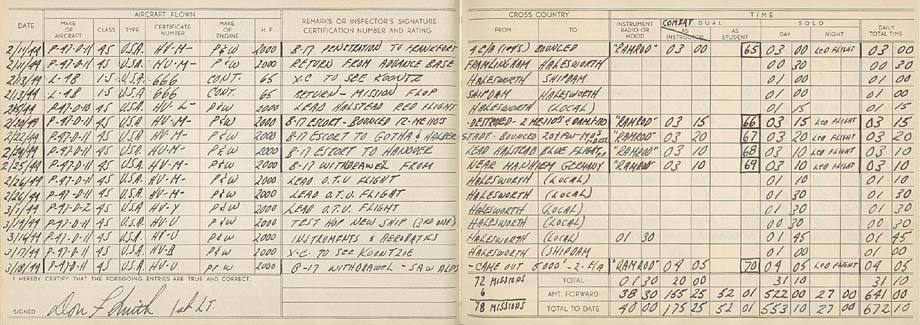 AIRCRAFT FLOWN CROSS COUNTRY TIME
DATE MAKE OF AIRCRAFT CLASS TYPE CERTIFICATE NUMBER MAKE OF ENGINE H.P. REMARKS OR INSPECTOR'S SIGNATURE CERTIFICATION NUMBER AND RATING FROM TO INSTRUMENT RADIO OR HOOD COMBAT DUAL AS INSTRUCTOR AS STUDENT SOLO DAY NIGHT DAILY TOTAL TIME
2/11/44 P-47-D-11 45 U.S.A. HV-M- P&W 2000 B-17 PENETRATION TO FRANKFORT 4 E/A (109S) BOUNCED "RAMROD" 03 00 65 03 00 LED FLIGHT 03 00
2/11/44 P-47-D-11 45 U.S.A. HV-M- P&W 2000 RETURN FROM ADVANCE BASE FRAMLINGHAM HALESWORTH 00 30 00 30
2/13/44 L-4B 15 U.S.A. 666 CONT. 65 X-C TO SEE KOONTZ HALESWORTH SHIPDAM 01 00 01 00
2/13/44 L-4B 15 U.S.A 666 CONT. 65 RETURN - MISSION FLOP SHIPDAM HALESWORTH 01 00 01 00
P-47-D-10 45 U.S.A. HV-L- P&W 2000 LEAD HALSTEAD RED FLIGHT HALESWORTH (LOCAL) 01 15 01 15
2/20/44 P-47-D-11 45 U.S.A. HV-M- P&W 2000 B-17 ESCORT - BOUNCED 12-ME110S -DESTROYED - 2 ME110S "RAMROD" 03 15 66 03 15 LED FLIGHT 03 15
2/22/44 P-47-D-11 45 U.S.A. HV-M- P&W 2000 B-17 ESCORT TO GOTHA & HALBER- STADT - BOUNCED "RAMROD" 03 20 67 03 20 LED FLIGHT 03 20
2/24/44 P-47-D-11 45 U.S.A. HV-M- P&W 2000 B-17 ESCORT TO HANOVER LEAD HALSTEAD BLUE FLIGHT "RAMROD" 03 10 68 03 10 LED FLIGHT 03 10
2/25/44 P-47-D-11 45 U.S.A. HV-M- P&W 2000 B-17 WITHDRAWEL FROM NEAR MANHIEM GERMANY "RAMROD" 03 10 69 03 10 LED FLIGHT 03 10
2/26/44 P-47-D-11 45 U.S.A. HV-M- P&W 2000 LEAD O.T.U FLIGHT HALESWORTH (LOCAL) 01 10 01 10
2/26/44 P-47-D-11 45 U.S.A. HV-M- P&W 2000 LEAD O.T.U. FLIGHT HALESWORTH (LOCAL) 01 30 01 30
3/1/44 P-47-D-2 45 U.S.A. HV-J- P&W 2000 LEAD O.T.U. FLIGHT HALESWORTH (LOCAL) 01 30 01 30
P-47-D-11 45 U.S.A. HV-U P&W 2000 TEST HOP NEW SHIP (3RD ONE) HALESWORTH (LOCAL) 00 30 00 30
3/16/44 P-47-D-11 45 U.S.A. HV-U P&W 2000 INSTRUMENTS & AEROBATICS HALESWORTH (LOCAL) 01 30 01 45 01 45
3/17/44 P-47-D-11 45 U.S.A. P&W 2000 X-C- TO SEE KOONTZIE HALESWORTH (SHIPDAM 01 00 01 00
3/18/44 P-47-D-11 45 U.S.A. HV-U P&W 2000 B-17 WITHDRAWEL - SAW ALPS -CAME OUT 5000' - 2 - E/A "RAMROD" 04 05 70 04 05 LED FLIGHT 04 05
I HEREBY CERTIFY THAT THE FOREGOING ENTRIES ARE TRUE AND CORRECT.
SIGNED Don P Smith 1st LT.
72 MISSIONS TOTAL 01 30 20 00 31 10 31 10
6 AMT. FORWARD 38 30 155 25 52 01 522 00 27 00 641 00
78 MISSIONS TOTAL TO DATE 40 00 175 25 52 01 553 10 27 00 672 10